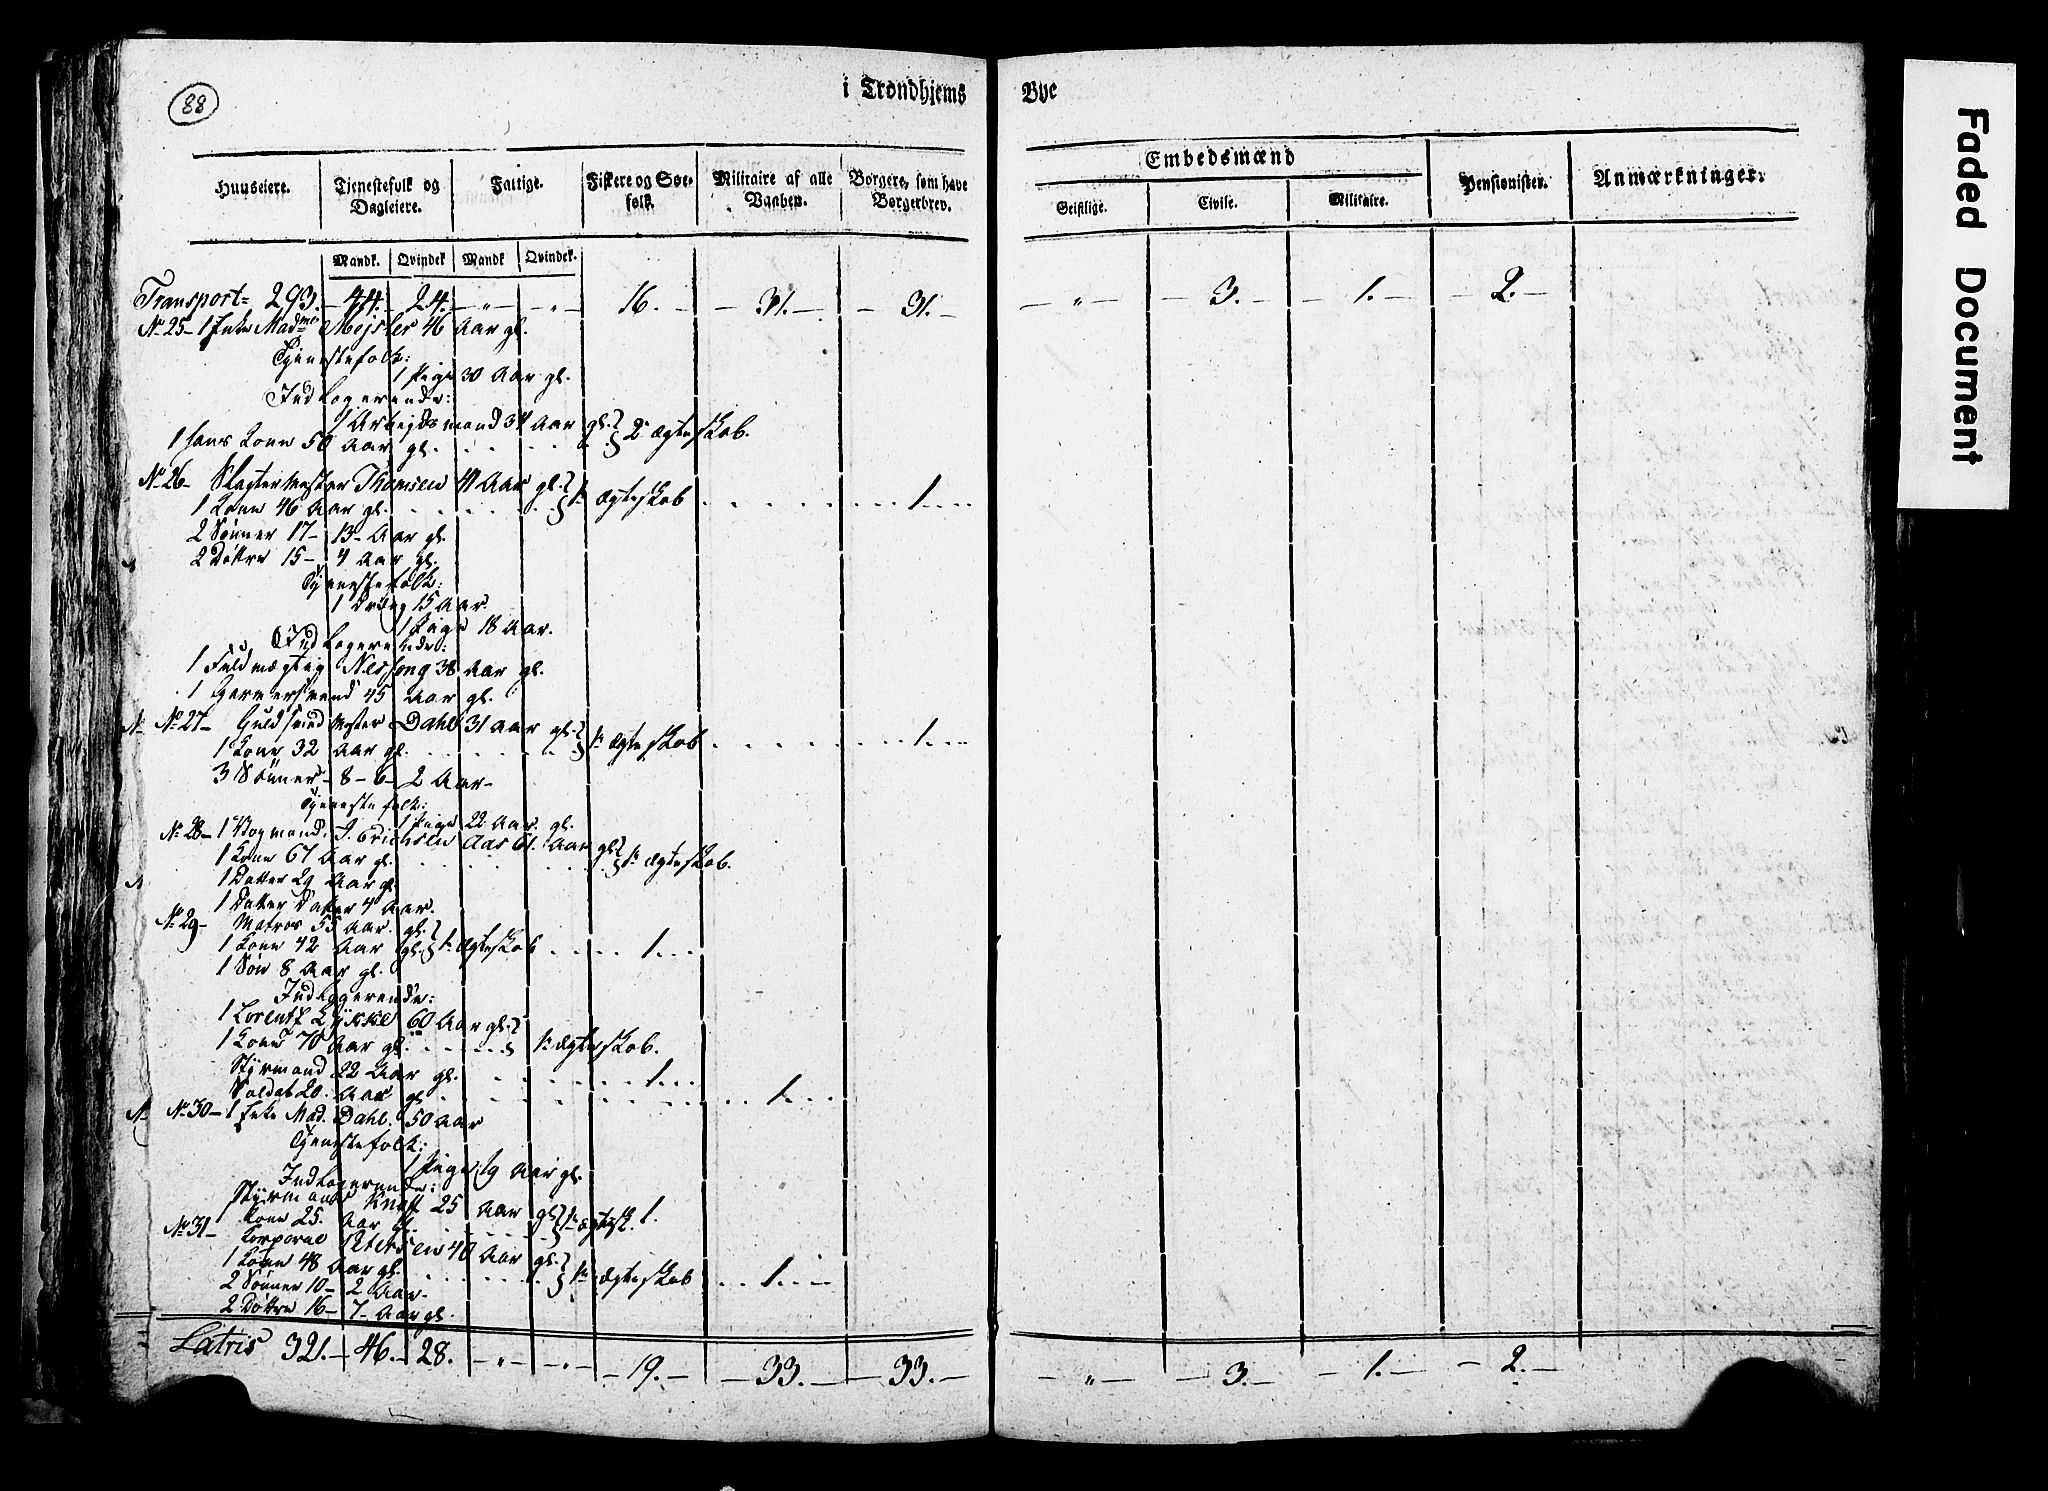 88
i Trondhjems Bye
Huuseiere.
Tjenestefolk og Dagleiere.
Fattige.
Fiskere og Søe-folk.
Militaire af alle Vaaben.
Borgere, som have Borgerbrev.
Embedsmænd
Geistlige.
Civile.
Militaire.
Pensionister.
Anmærkninger.
Mandk. Qvindek Mandk Qvindek.
Transport 293. 44. 24. " " 16. 31. 31. " 3. 1. 2.
No 25 1 Enke Madme Mejsler 46 Aar gl.
Tjenestefolk:
1 Pige 30 Aar gl.
Indlogerende:
1 Arbejdsmand 34 Aar gl.
1 hans Kone 50 Aar gl. 2 ægteskab.
No 26 Slagtermester Thomsen 41 Aar gl.
1 Kone 46 Aar gl. 1 ægteskab 1.
2 Sønner 17- 13- Aar gl.
2 Døttre 15- 4 Aar gl.
Tjenestefolk:
1 Dreng 15 Aar
1 Pige 18 Aar.
Indlogerende:
1 Fuldmægtig 38 Aar gl.
1 Garversvend 45 Aar gl.
No 27 Guldsmed Mester Dahl 31 Aar gl.
1 Kone 32 Aar gl. 1 ægteskab 1.
3 Sønner 8- 6- 2 Aar-
Tjenestefolk:
1 Pige 22 Aar. gl.
No 28- 1 Vogmand. J. Erichsen Aas 61. Aar gl.
1 Kone 67 Aar gl. 1 ægteskab.
1 Datter 29 Aar gl.
1 Datter Datter 4 Aar.
No 29- Matros 55 Aar. gl.
1 Kone 42 Aar gl. 1 ægteskab 1.
1 Søn 8 Aar gl.
Indloggerende:
1 Lorentz Lykke 60 Aar gl.
1 Kone 70 Aar gl. 1 ægteskab.
Styrmand 22 Aar gl. 1.
Soldat 20. Aar gl 1.
No 30- 1 Enke Mad. Dahl. 50 Aar
Tjenestefolk:
1 Pige 19 Aar gl.
Indlogerende:
Styrmand Knoff 25 Aar gl.
Kone 25. Aar gl. 1 ægtesk. 1.
No 31- Korporal Petersen 40 Aar gl.
1 Kone 48 Aar gl. 1 ægteskab 1.
2 Sønner 10- 2 Aar-
2 Døttre 16- 7- Aar gl.
Latris 321. 46. 28. " " 19. 33. 33. " 3. 1. 2.
Faded Document